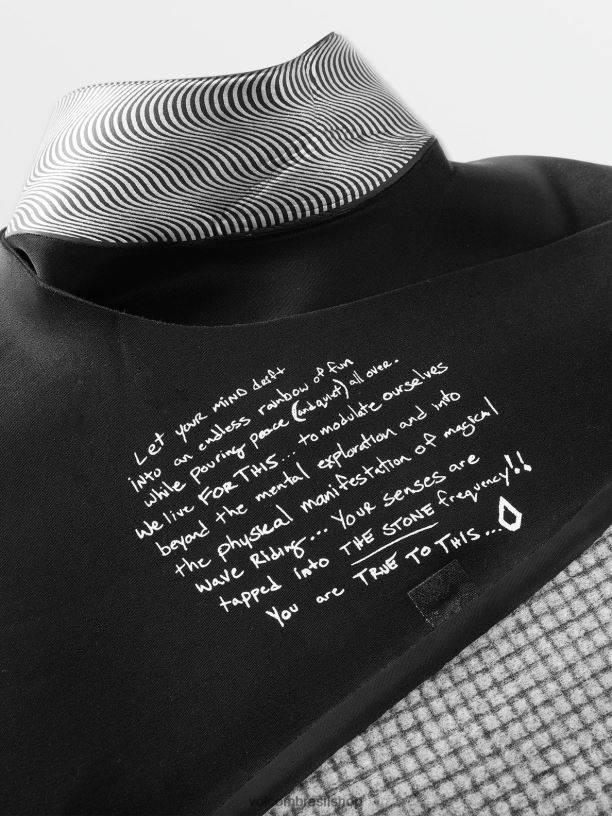 Let your MIND drift
INto an endless rainbow of fun
while pouring peace (and quiet) all over.
We live FOR THIS... to modulate ourselves
beyond the mental exploration and into
the physical manifestation of magical
wave Riding... Your senses are
tapped into THE STONE frequency!!
You are TRUE TO THIS...
volcombrasilshop